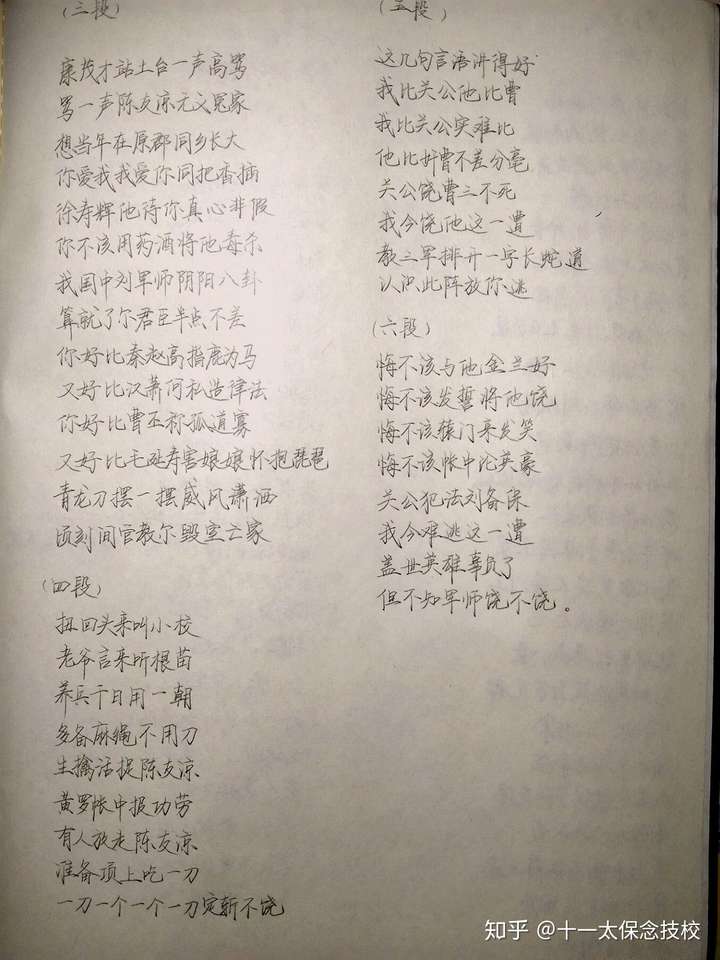 (三段)
康茂才站土台一声高骂
骂一声陈友凉无义冤家
想当年在原郡同乡长大
你爱我我爱你同把香插
徐寿辉他待你真心非假
你不该用药酒将他毒杀
我国中刘军师阴阳八卦
算就了尔君臣半点不差
你好比秦赵高指鹿为马
又好比汉萧何私造律法
你好比曹丕称孤道寡
又好比毛延寿害娘娘怀抱琵琶
青龙刀摆一摆威风潇洒
顷刻间管教尔毁室亡家
(四段)
扭回头来叫小校
老爷言来听根苗
养兵千日用一朝
多备麻绳不用刀
生擒活捉陈友凉
黄罗帐中报功劳
有人放走陈友凉
准备项上吃一刀
一刀一个一个一刀定斩不饶
(五段)
这几句言语讲得好
我比关公他比曹
我比关公实难比
他比奸曹不差分毫
关公饶曹三不死
我今饶他这一遭
教三军排开一字长蛇道
认识此阵放你逃
(六段)
悔不该与他金兰好
悔不该发誓将他饶
悔不该辕门来发笑
悔不该帐中论英豪
关公犯法刘备保
我今难逃这一遭
盖世英雄辜负了
但不知军师饶不饶。
知乎 @十一太保念技校